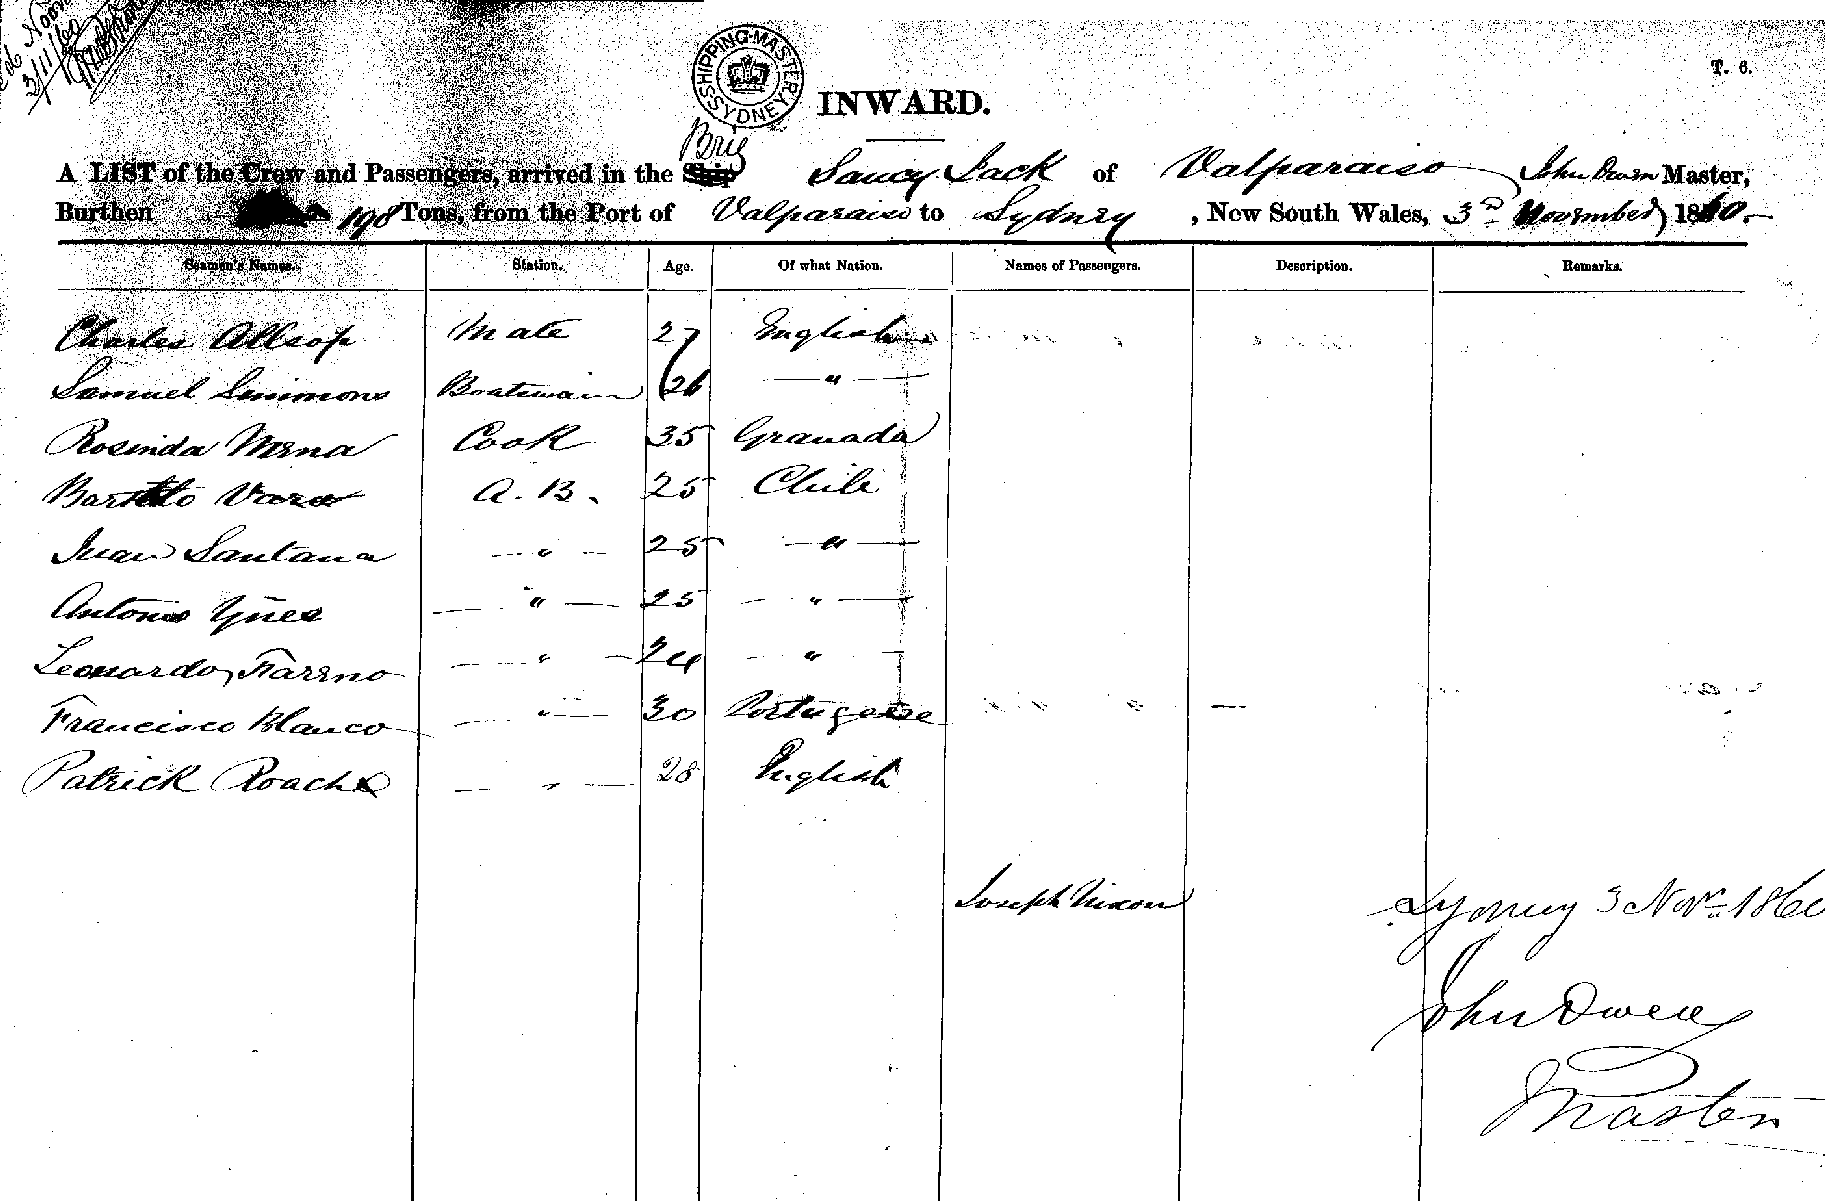 3/11/60
SHIPPING-MASTER SYDNEY
T. 6.
INWARD.
Brig
A LIST of the Crew and Passengers, arrived in the Ship Saucy Jack of Valparaiso John Owen Master,
Burthen 198 Tons, from the Port of Valparaiso to Sydney , New South Wales, 3rd November 1860.
Seamen's Names. Station. Age. Of what Nation. Names of Passengers. Description. Remarks.
Charles Allsop Mate 27 English
Samuel Simmons Boatswain 26 "
Rosinda Mena Cook 35 Granada
A. B. 25 Chile
Juan Santana " 25 "
Antonio Yñes " 25 "
Leonardo " 24 "
Francisco Blanco " 30 Portuguese
Patrick Roach " 28 English
Joseph Nixon
Sydney 3 Novr 1860
John Owen
Master